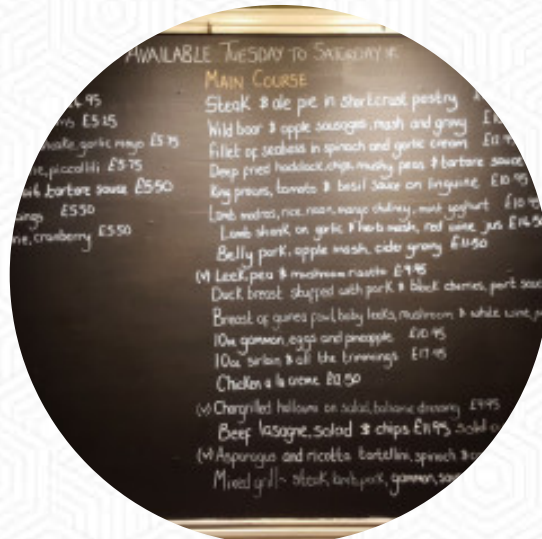 AVAILABLE TUESDAY TO SATURDAY
MAIN COURSE
.95
£5.25
garlic mayo £5.75
piccalilli £5.75
tartare sauce £5.50
£5.50
cranberry £5.50
Steak & ale pie in shortcrust pastry
Wild boar & apple sausages, mash and gravy
Fillet of seabass in spinach and garlic cream
Deep fried haddock, chips, mushy peas & tartare sauce
King prawns, tomato & basil sauce on linguine £10.95
Lamb madras, rice, naan, mango chutney, mint yoghurt £10.95
Lamb shank on garlic & herb mash, red wine jus
Belly pork, apple mash, cider gravy £11.50
(v) Leek, pea & mushroom risotto £9.95
Duck breast stuffed with pork & black cherries, port
Breast of guinea fowl, baby leeks, mushroom & white wine
10oz gammon, eggs and pineapple £10.95
10oz sirloin & all the trimmings £17.95
Chicken a la creme
(v) Chargrilled halloumi on salad, balsamic dressing £9.95
Beef lasagne, salad & chips £11.95
(v) Asparagus and ricotta tortellini, spinach &
Mixed grill ~ steak, lamb, pork, gammon,